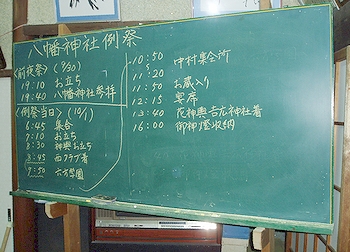 八幡神社例祭
〈前夜祭〉(9/30)
19:10 お立ち
19:40 八幡神社参拝
〈例祭当日〉(10/1)
6:45 集合
7:10 お立ち
8:30 神輿お立ち
8:45 西クラブ着
9:50 六方学園
10:50 中村集会所
11:20
11:50 お蔵入り
12:15 宴席
13:40 花神輿吉九神社着
16:00 御神燈収納